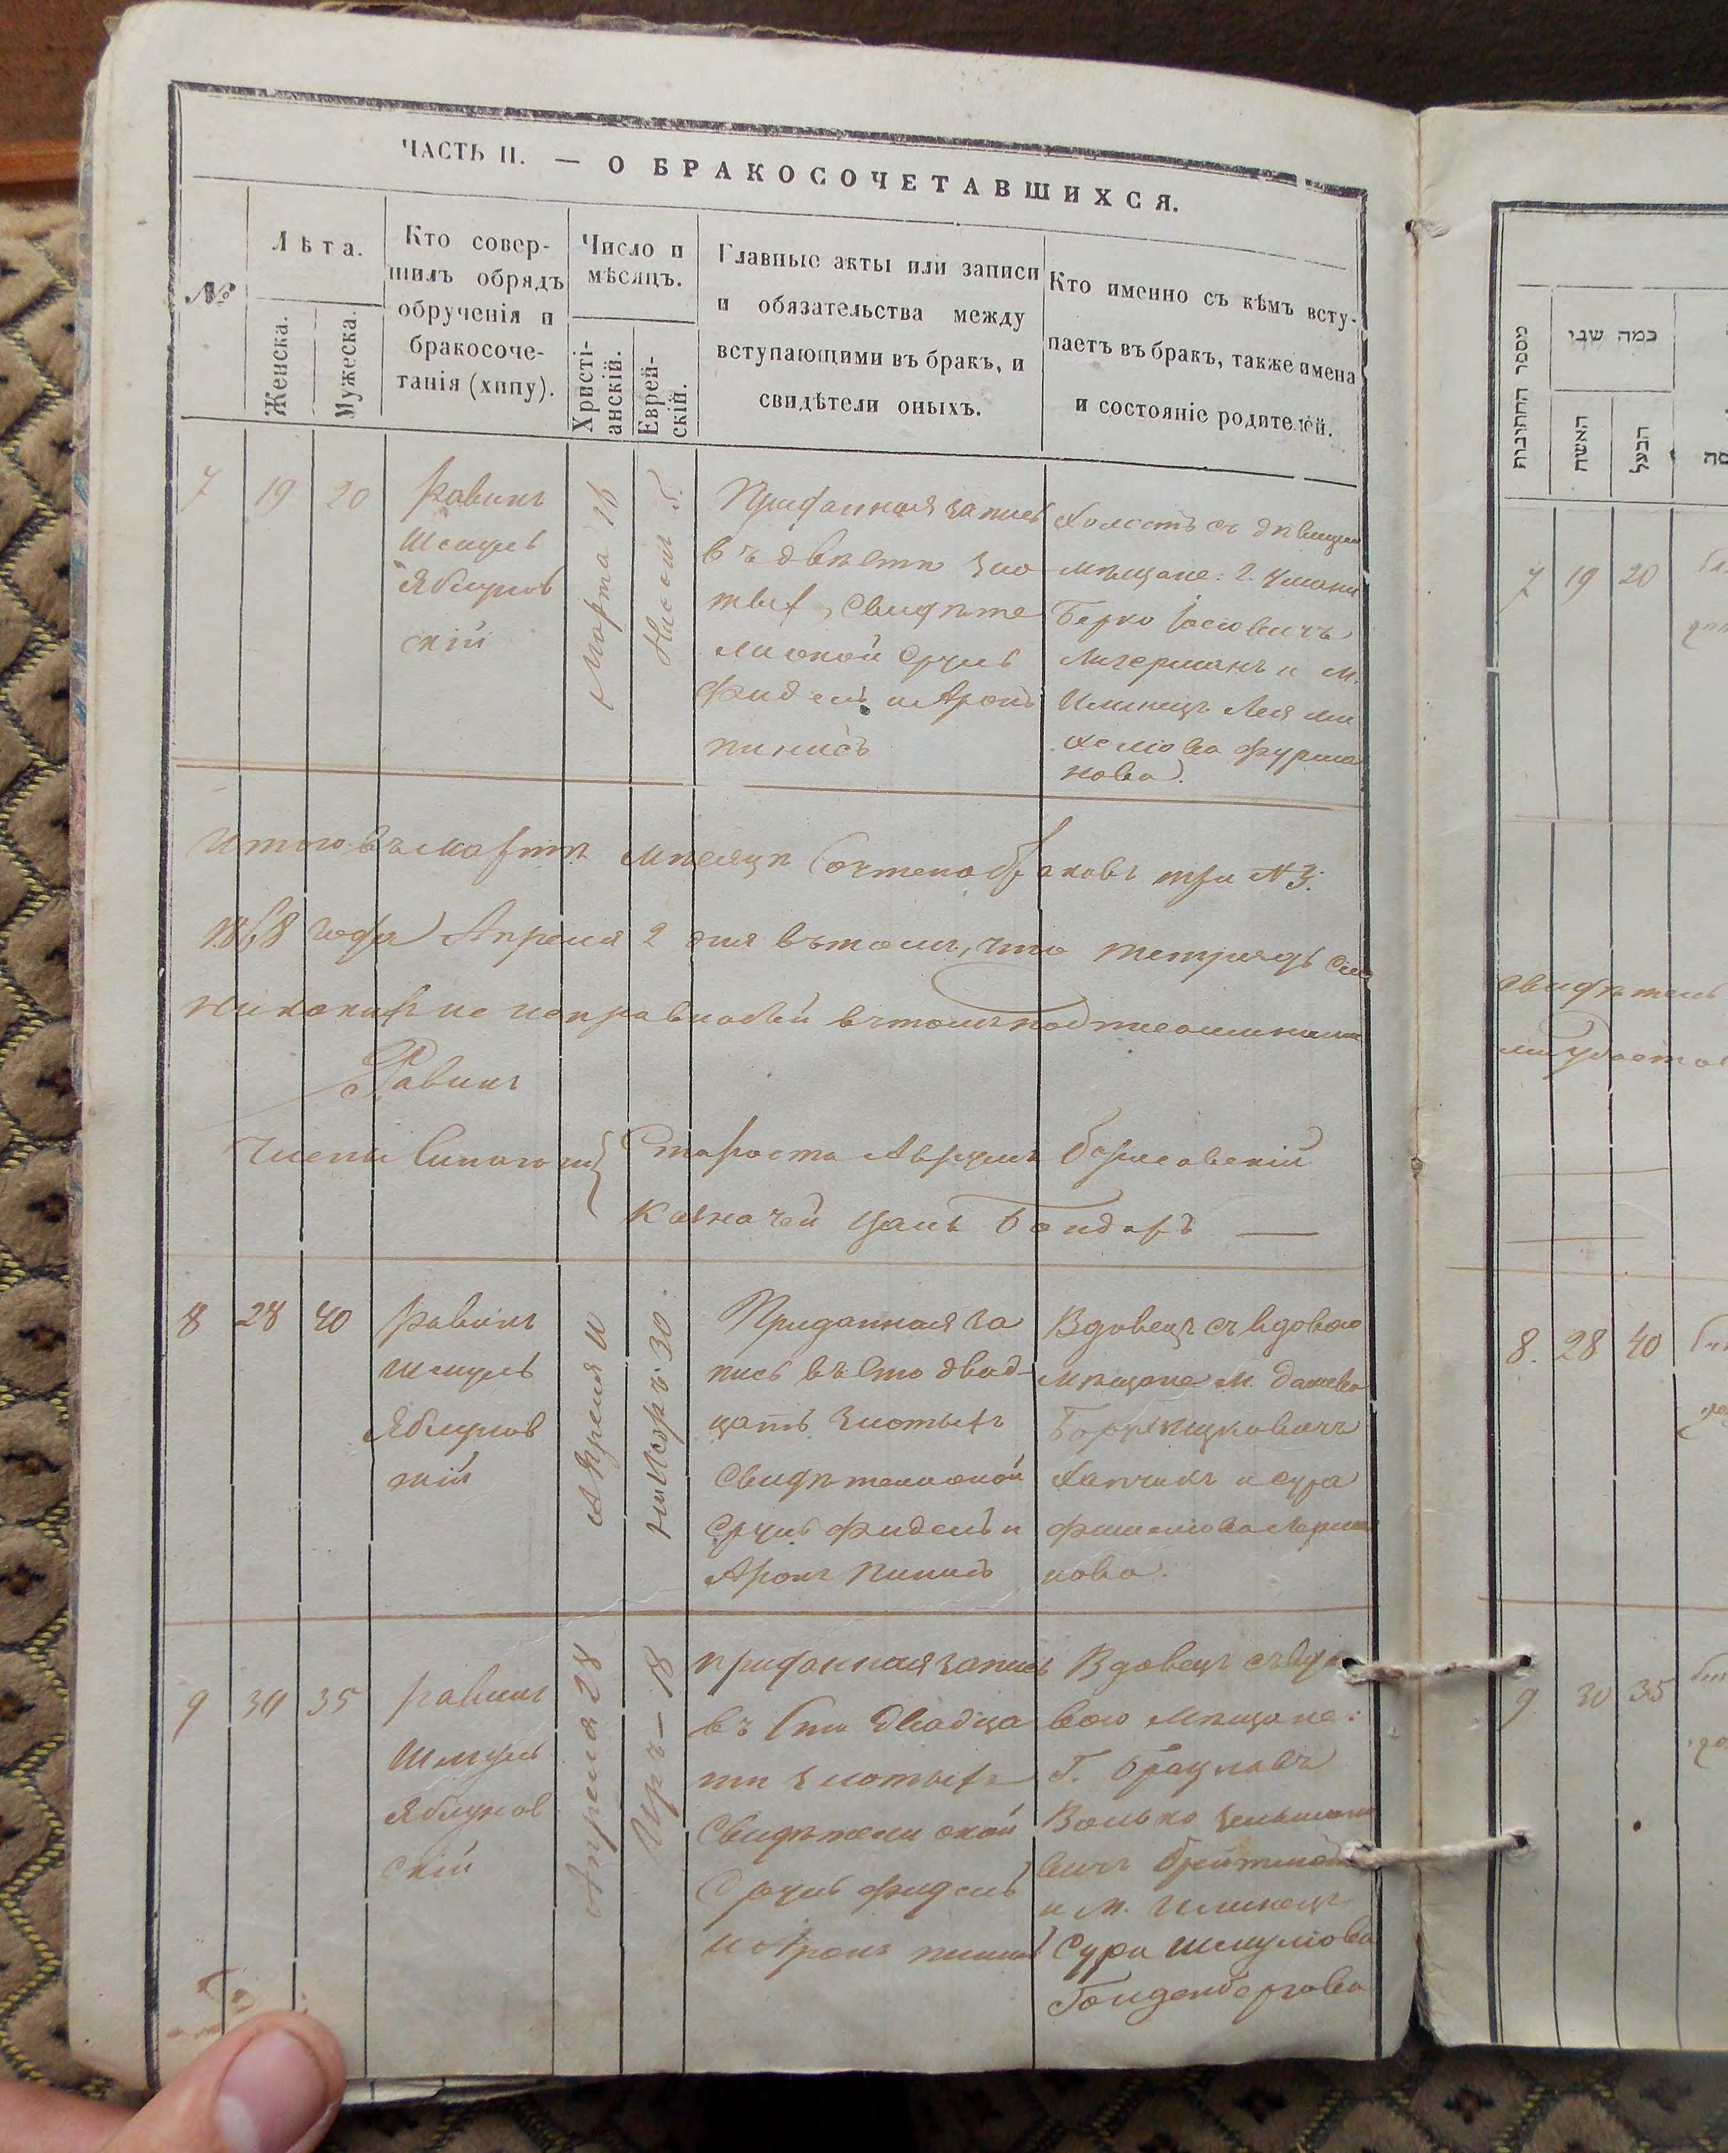 ЧАСТЬ II. — О БРАКОСОЧЕТАВШИХСЯ.
№
Лѣта.
Женска.
Мужеска.
Кто совер-
шилъ обрядъ
обрученія и
бракосоче-
танія (хипу).
Число и
мѣсяцъ.
Христі-
анскій.
Еврей-
скій.
Главные акты или записи
и обязательства между
вступающими въ бракъ, и
свидѣтели оныхъ.
Кто именно съ кѣмъ всту-
паетъ въ бракъ, также имена
и состояніе родителей.
7
19
20
Равинъ
Шмуль
Яблунов
скій
Марта 16
Нисонъ 5.
Приданная запись
въ двѣсти зло
тыхъ, Свидѣте
ли оной Сруль
Фидель и Аронъ
Пинись
Холостъ съ дѣвицею
мѣщане: г. Умани
Берко Іосіовичъ
Лигерманъ и м.
Илинецъ Лея Ми
хеліова Фурма
нова.
Итого въ мартѣ мѣсяцѣ Сочтено браковъ три №3.
1868 года Апреля 2 дня въ томъ, что тетрядь сія
Равинъ
Члены Синагоги Староста Аврумъ
Казначей Бондаръ —
8
28
40
Равинъ
Шмуль
Яблунов
скій
Апреля 10
Нисонъ: 30.
Приданная за
пись въ Сто двад-
цать Злотыхъ
Свидѣтели оной
Сруль Фидель и
Аронъ Пинись
Вдовецъ съ вдовою
мѣщане м. Дашева
Ицковичъ
и Сура
нова.
9
30
35
Равинъ
Шмуль
Яблунов
скій
Апреля 28
Иръ — 18
Приданная запись
въ Сто двадца
ти Злотыхъ
Свидѣтели оной
Сруль Фидель
и Аронъ Пинись
Вдовецъ съ вдо
вою Мѣщане:
Г. Брацлавъ
Волько Зельмано
вичъ
и М. Илинецъ
Сура Шмуліова
Голденбергова
מספר החתונות
כמה שני
האשה
הבעל
7
19
20
8.
28
40
9
30
35